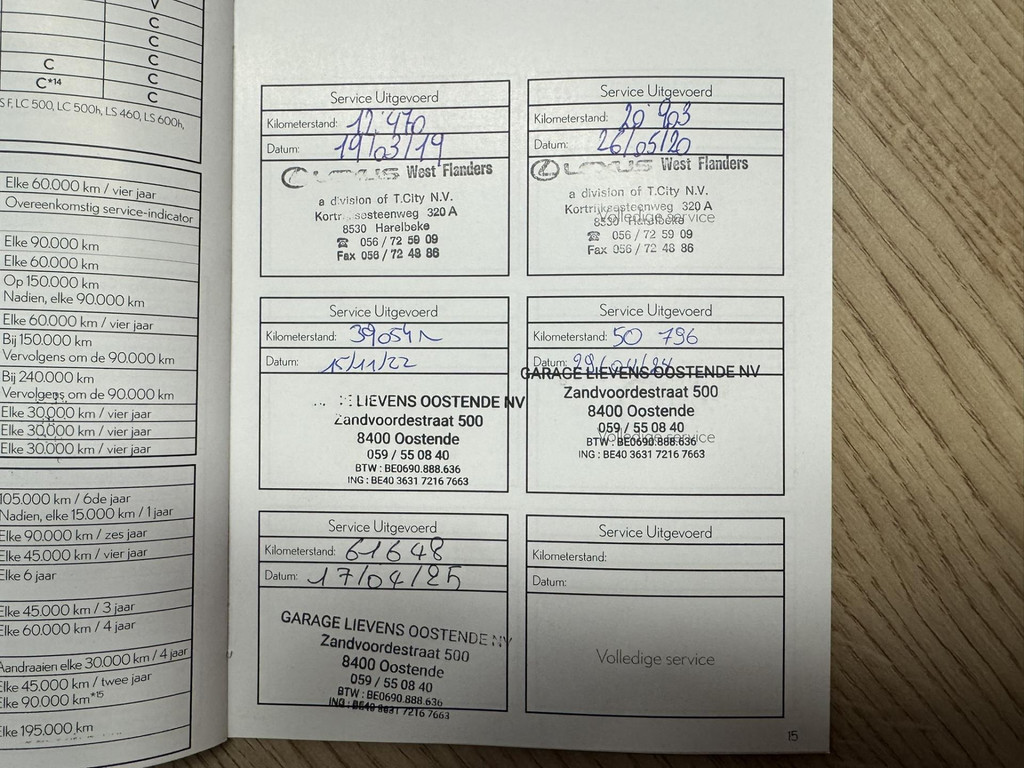 V
C
C
C
C C
C*14 C
S F, LC 500, LC 500h, LS 460, LS 600h,
Elke 60.000 km / vier jaar
Overeenkomstig service-indicator
Elke 90.000 km
Elke 60.000 km
Op 150.000 km
Nadien, elke 90.000 km
Elke 60.000 km / vier jaar
Bij 150.000 km
Vervolgens om de 90.000 km
Bij 240.000 km
Vervolgens om de 90.000 km
Elke 30.000 km / vier jaar
Elke 30.000 km / vier jaar
Elke 30.000 km / vier jaar
105.000 km / 6de jaar
Nadien, elke 15.000 km / 1 jaar
Elke 90.000 km / zes jaar
Elke 45.000 km / vier jaar
Elke 6 jaar
Elke 45.000 km / 3 jaar
Elke 60.000 km / 4 jaar
Aandraaien elke 30.000 km / 4 jaar
Elke 45.000 km / twee jaar
Elke 90.000 km*15
Elke 195.000 km
Service Uitgevoerd
Kilometerstand: 12.470
Datum: 19/03/19
LEXUS West Flanders
a division of T.City N.V.
320 A
8530 Harelbeke
☎ 056 / 72 59 09
Fax 056 / 72 48 86
Service Uitgevoerd
Kilometerstand: 20 903
Datum: 26/05/20
LEXUS West Flanders
a division of T.City N.V.
Kortrijksesteenweg 320 A
Volledige service
8530 Harelbeke
☎ 056 / 72 59 09
Fax 056 / 72 48 86
Service Uitgevoerd
Kilometerstand: 39054
Datum: 15/11/22
LIEVENS OOSTENDE NV
Zandvoordestraat 500
8400 Oostende
059 / 55 08 40
BTW : BE0690.888.636
ING : BE40 3631 7216 7663
Service Uitgevoerd
Kilometerstand: 50 796
Datum:
GARAGE LIEVENS OOSTENDE NV
Zandvoordestraat 500
8400 Oostende
059 / 55 08 40
Volledige service
BTW : BE0690.888.636
ING : BE40 3631 7216 7663
Service Uitgevoerd
Kilometerstand: 61648
Datum: 17/04/25
GARAGE LIEVENS OOSTENDE NV
Zandvoordestraat 500
8400 Oostende
059 / 55 08 40
BTW : BE0690.888.636
ING : BE40 3631 7216 7663
Service Uitgevoerd
Kilometerstand:
Datum:
Volledige service
15